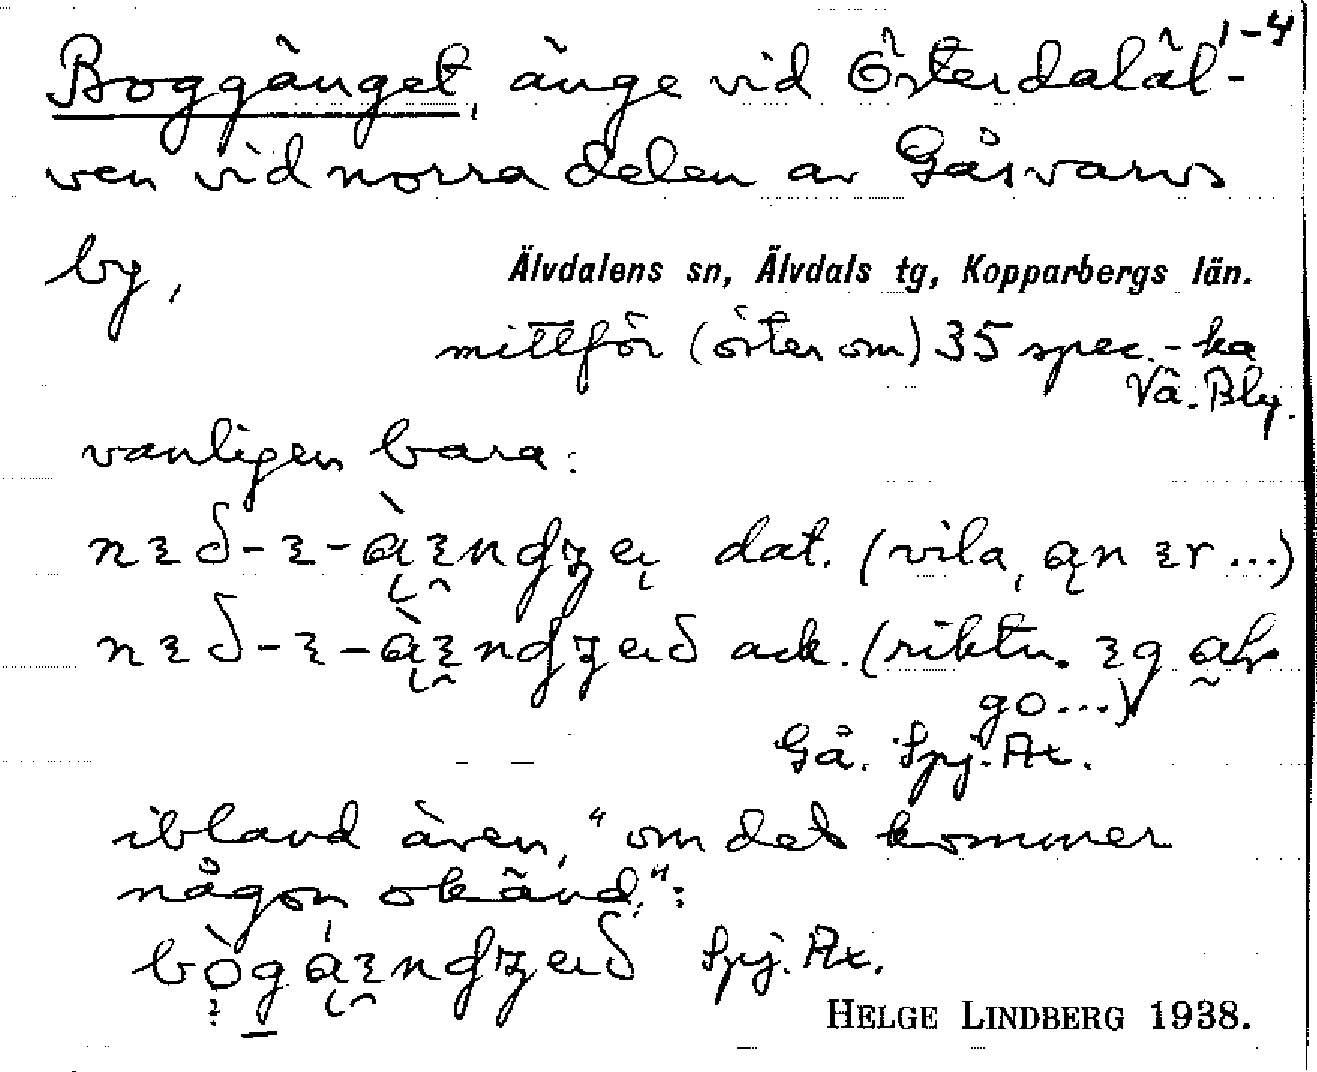 1-4
Boggänget, änge vid Österdaläl-
ven vid norra delen av Gåsvarvs
by,
Älvdalens sn, Älvdals tg, Kopparbergs län.
mittför (öster om) 35 spec.-ka
Vä. Bly.
vanligen bara:
dat. (vila,
ack. (riktn.
go...)
Gå. Spj. Ax.
ibland även, "om det kommer
någon okänd.":
Spj. Ax.
HELGE LINDBERG 1938.